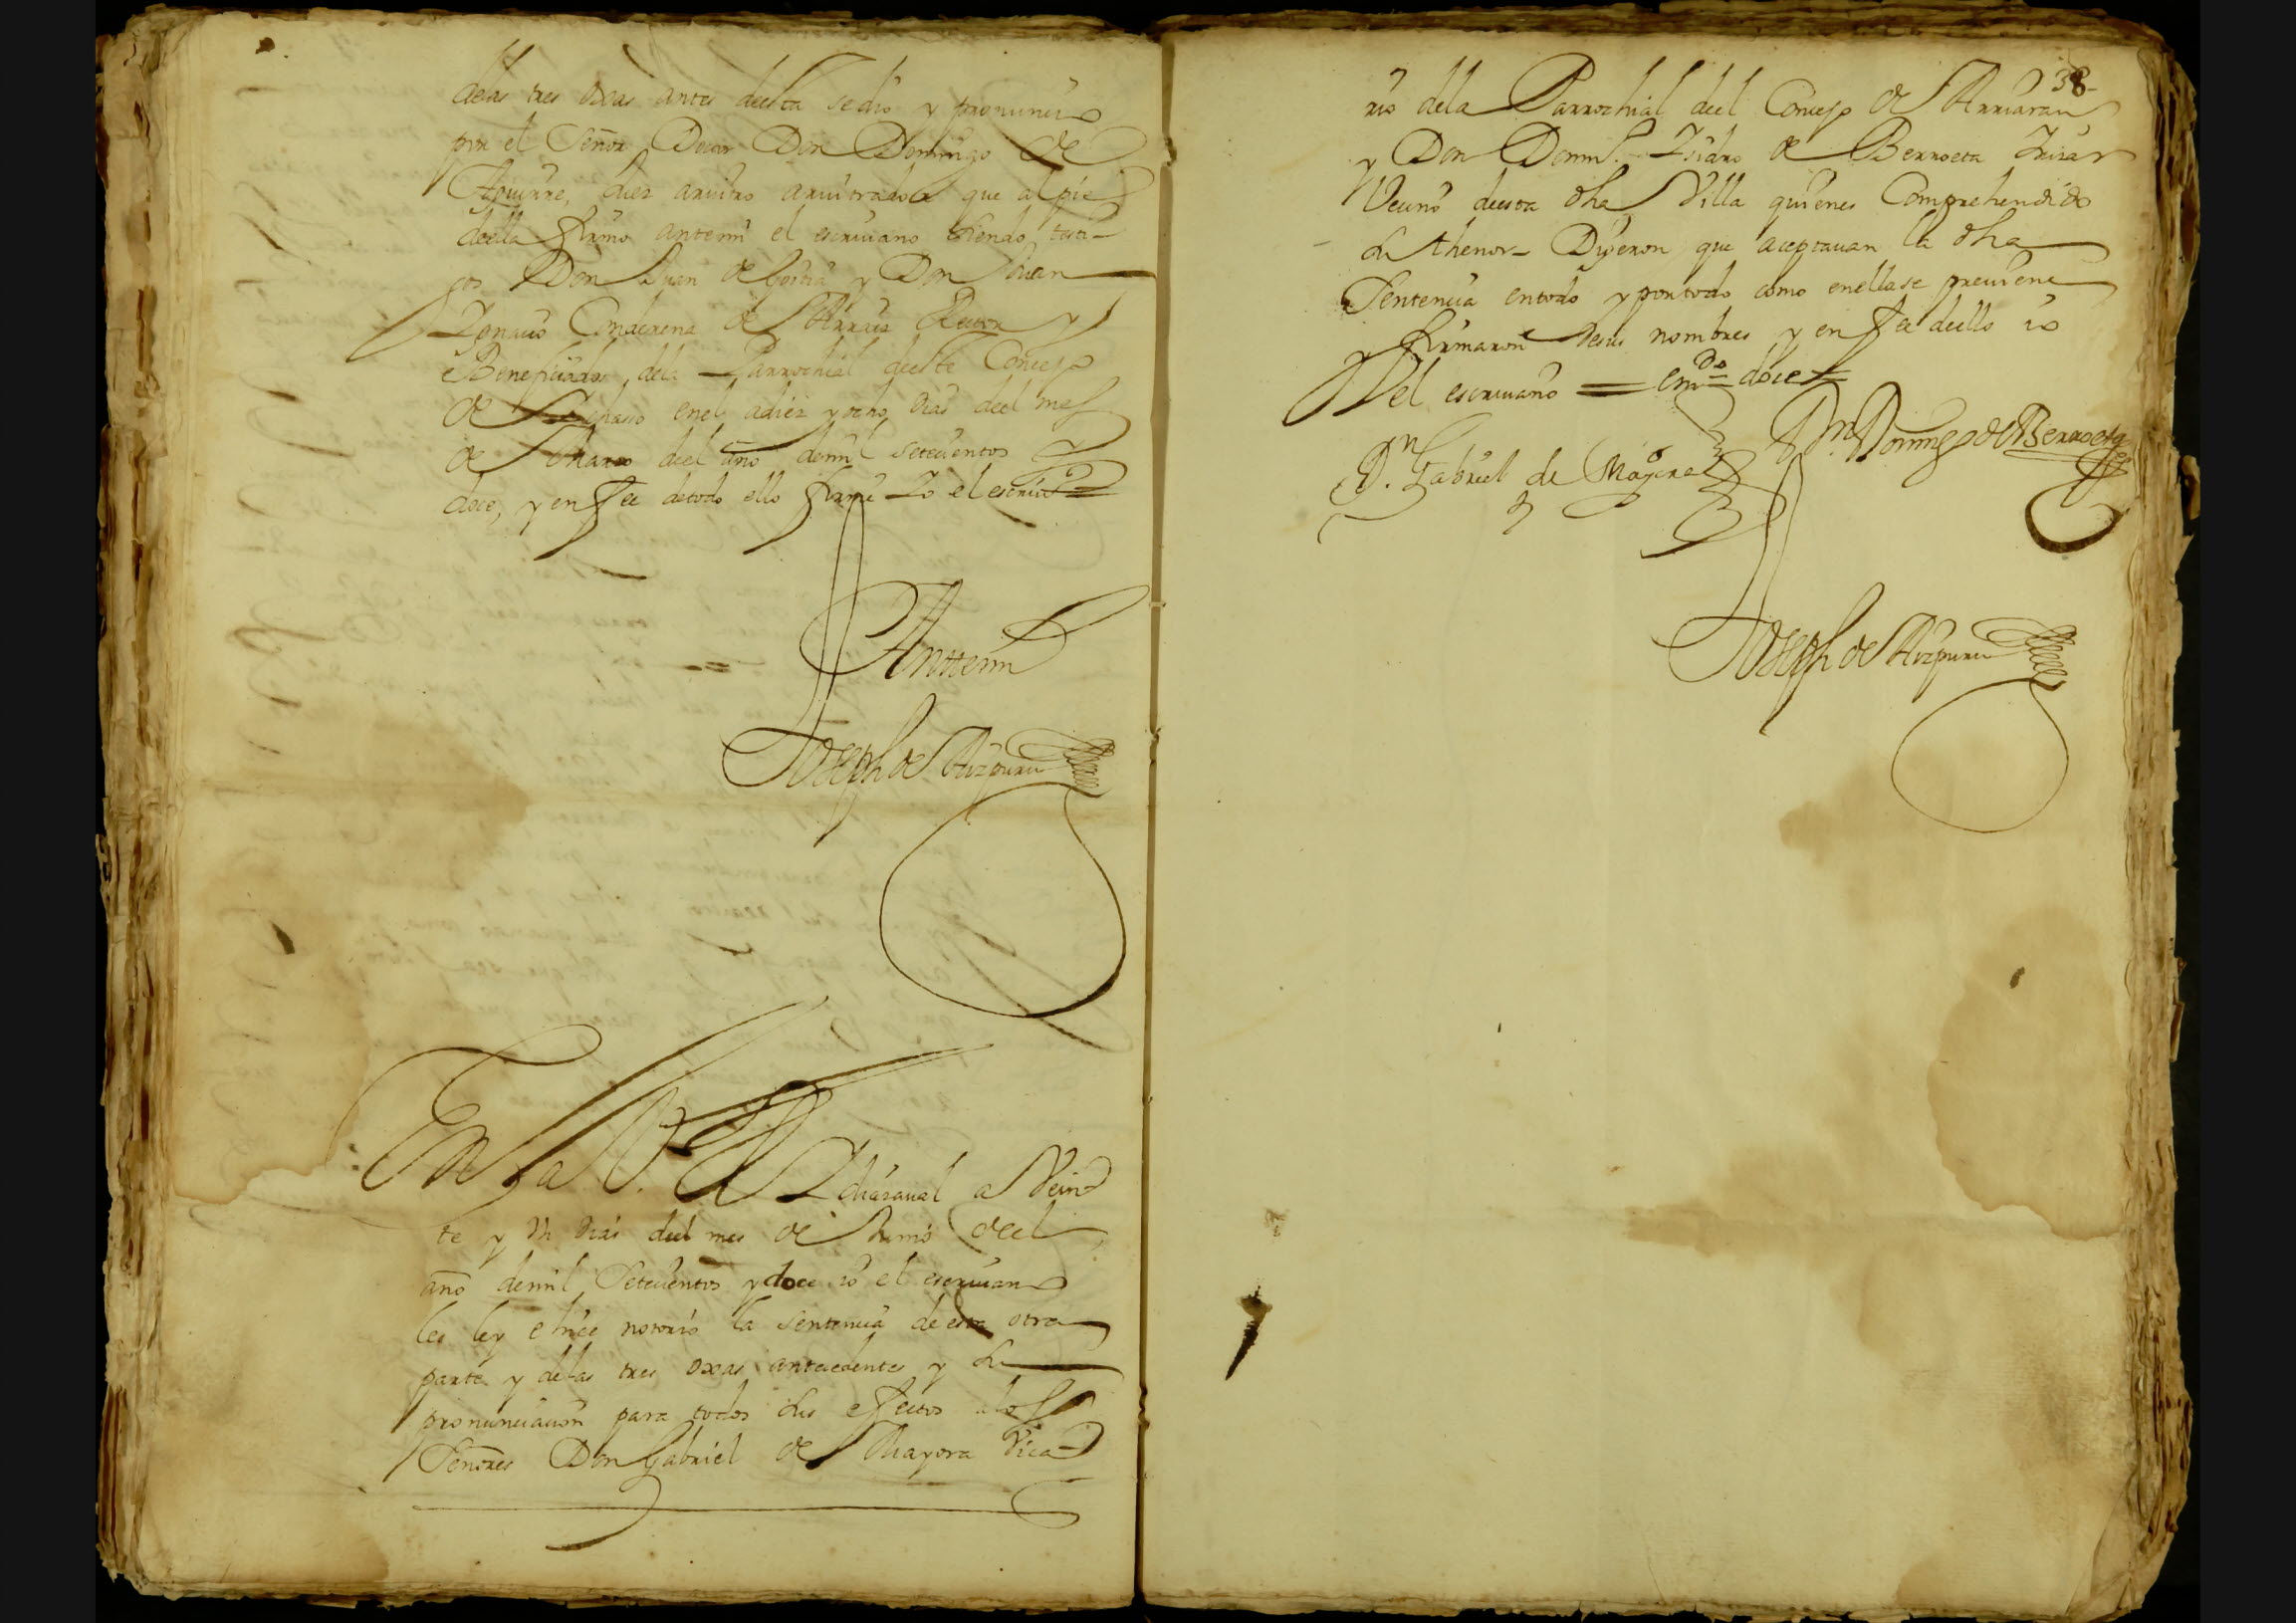 delas tres oxas antes deesta se dio y pronuncio
por el Señor Doctor Don Domingo de
Aguirre, Juez arvitro arvitrador que al pie
deella firmo antemi el escriuano siendo testi-
gos Don Juan de Gorria y Don Juan
Ignacio Condearena de Arraiz Rector y
Beneficiado dela Parrochial deeste Concejo
de enel a diez y ocho dias deel mes
de Marzo deel año demil setecientos y
doce, y en fee detodo ello firmé Yo el escriuano
Anttemi
Joseph de Aizpuru
En la V.ª de Ichasaual a Vein
te y Un dias deel mes de Junio deel
año demil Setecientos y doce io el escriuano
les ley e hice notorio la sentencia de esta otra
parte y delas tres oxas antecedentes y su
pronunciacion para todos sus efectos alos
Señores Don Gabriel de Mayora Vica-
38
rio dela Parrochial deel Concejo de Arriaran
y Don Domin.º Isidro de Berroeta Irizar
Vecino deesta dha Villa quienes Comprehendido
su thenor- Dijeron que aceptauan la dha
Sentencia entodo y portodo como enellase preuiene
y firmaron desus nombres y en fee deello io
el escriuano = em.do = doce =
D.n Gabriel de Mayora
D.n Domingo de Berroeta
Joseph de Aizpuru